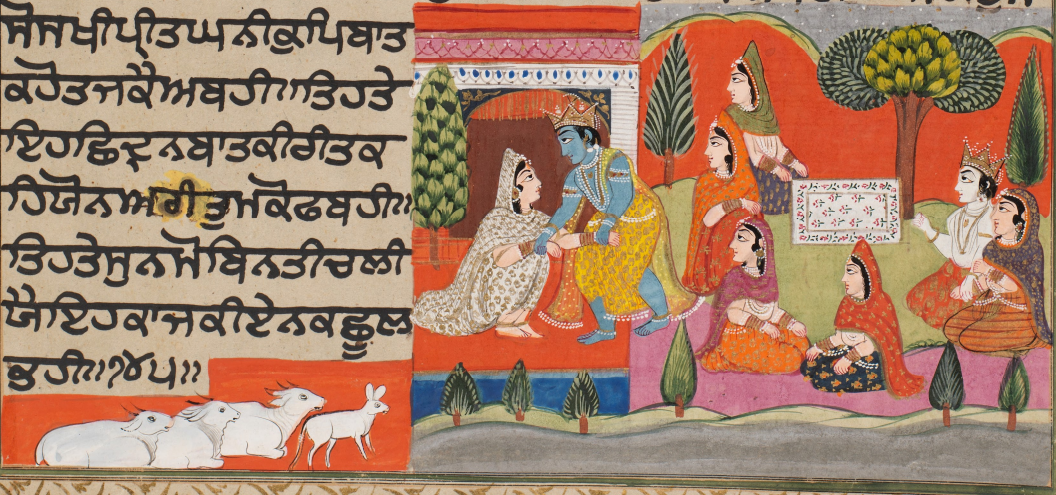 ਜੋਸਖੀਪ੍ਰੀਤਘਨੀਕੁਪਿਬਾਤ
ਕਹੋਤਜਕੈਅਬਹੀ॥ਤਿਹਤੇ
ਇਹਛਿਦ੍ਰਨਬਾਤਕੀਰੀਤਕ
ਹਿਯੋਨਅਰੀਤੁਮਕੋਫਬਹੀ॥
ਤਿਹਤੇਸੁਨਮੋਬਿਨਤੀਚਲੀ
ਯੈਇਹਕਾਜਕੀਏਨਕਛੂਲ
ਭਹੀ॥੭੪੫॥